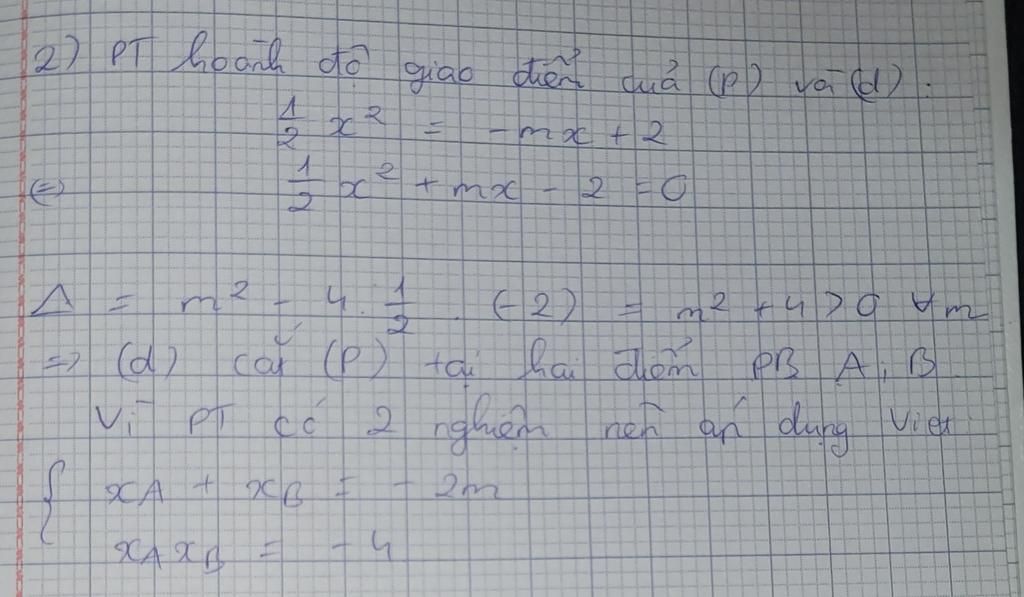 2) PT hoành độ giao điểm của (P) và (d) :
1/2 x² = -mx + 2
(=) 1/2 x² + mx - 2 = 0
Δ = m² - 4 . 1/2 . (-2) = m² + 4 > 0 ∀m
=> (d) cắt (P) tại hai điểm PB A, B
Vì PT có 2 nghiệm nên áp dụng Viet
{ xA + xB = - 2m
xA xB = - 4